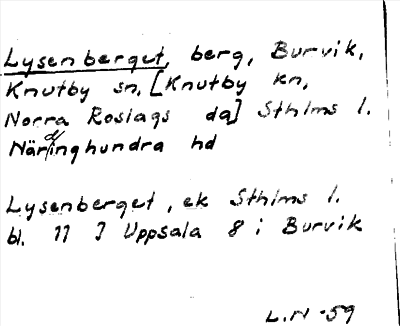 Lysenberget, berg, Burvik,
Knutby sn, [Knutby kn,
Norra Roslags dg] Sthlms l.
Närdinghundra hd
Lysenberget, ek Sthlms l.
bl. 77 J Uppsala 8 i Burvik
L.N -59